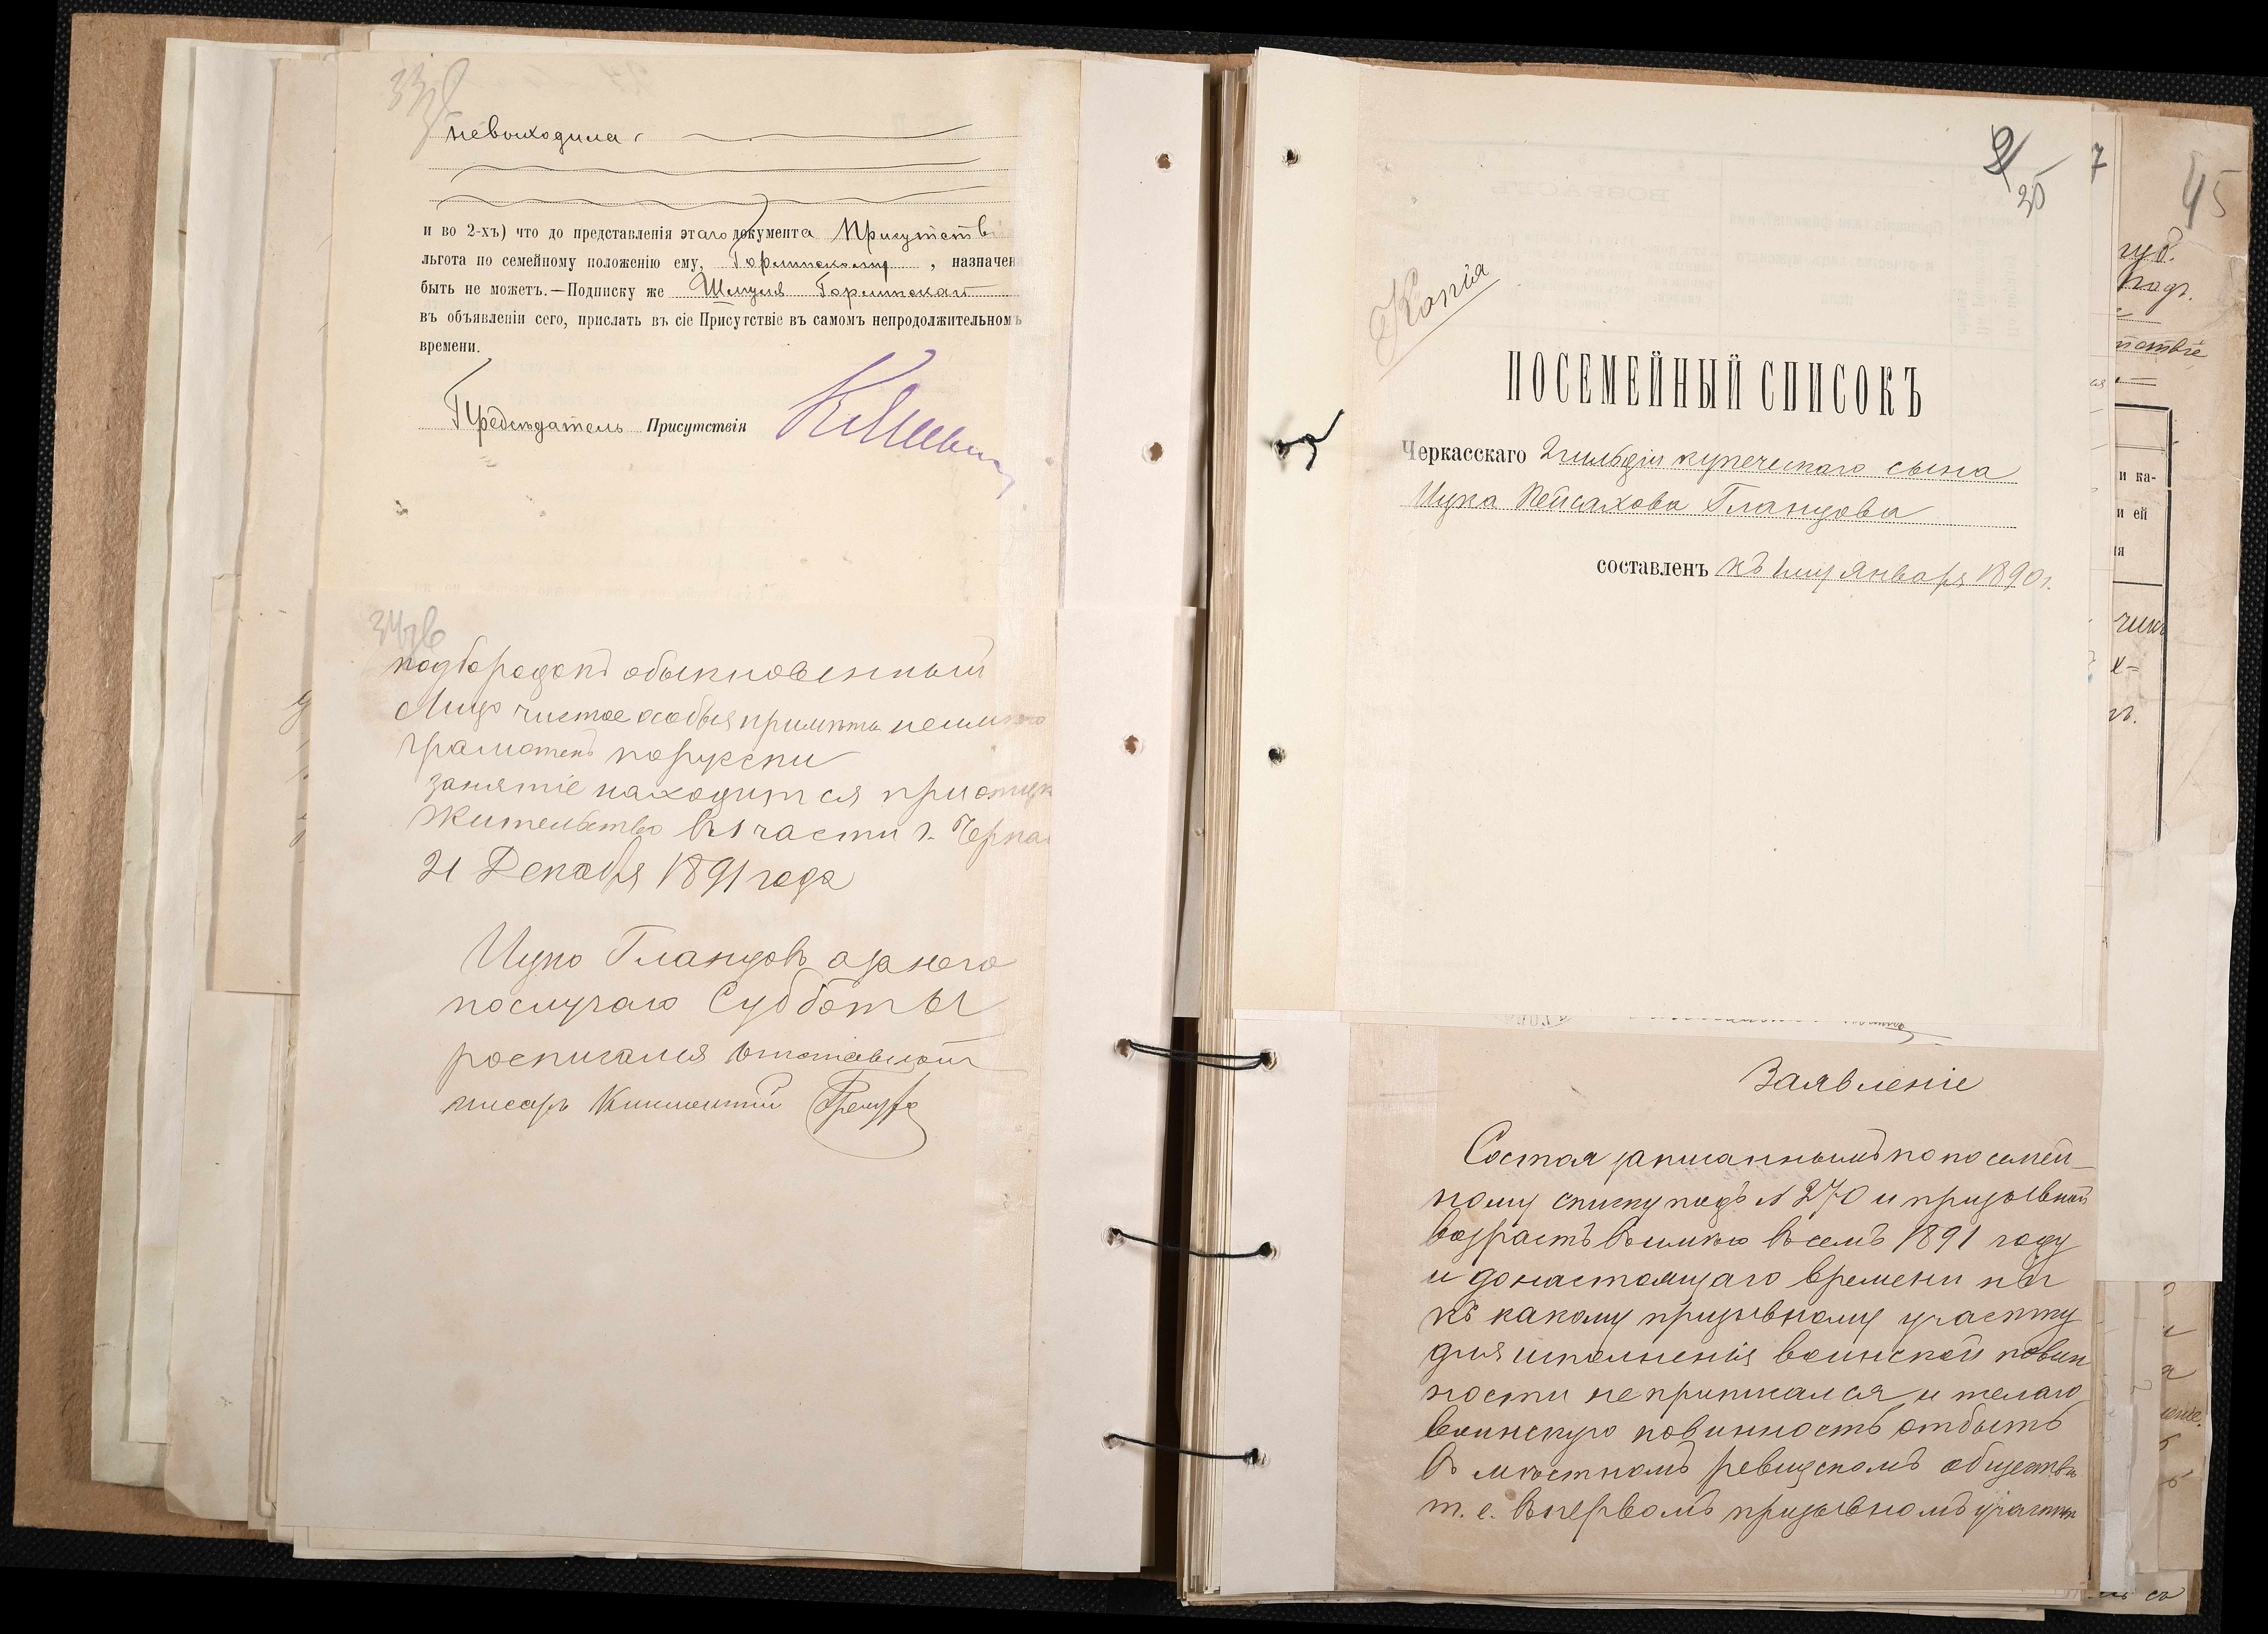 33об
невыходила.
и во 2-хъ) что до представленія этаго документа Присутств
льгота по семейному положенію ему, , назначен
быть не можетъ.—Подписку же Шмуля
въ объявленіи сего, прислать въ сіе Присутствіе въ самомъ непродолжительномъ
времени.
Предсѣдатель Присутствія
34об
подбородокъ обыкновенный
Лицо чистое особыя примѣты
грамотенъ порусски
занятіе находится при отцѣ
Жительство въ 1 части г. Черка
21 Декабря 1891 года
Ицко Гланцовъ а за него
послучаю Субботы
росписался отставной
писарь
45
7
35
Копія
ПОСЕМЕЙНЫЙ СПИСОКЪ
Черкасскаго 2 гильдіи купеческаго сына
Ицка Пейсахова Гланцова
составленъ къ 1 му Января 1890 г.
Заявленіе
Состоя записаннымъ по посемей-
ному списку подъ № 270 и призывной
возрастъ въ семъ 1891 году
и до настоящаго времени ни
къ какому призывному участку
для исполненія воинской повин
ности не приписался и желаю
воинскую повинность отбыть
въ мѣстномъ ревизскомъ обществѣ
т. е. въ первомъ призывномъ участкѣ
губ.
и ка-
и ей
ія